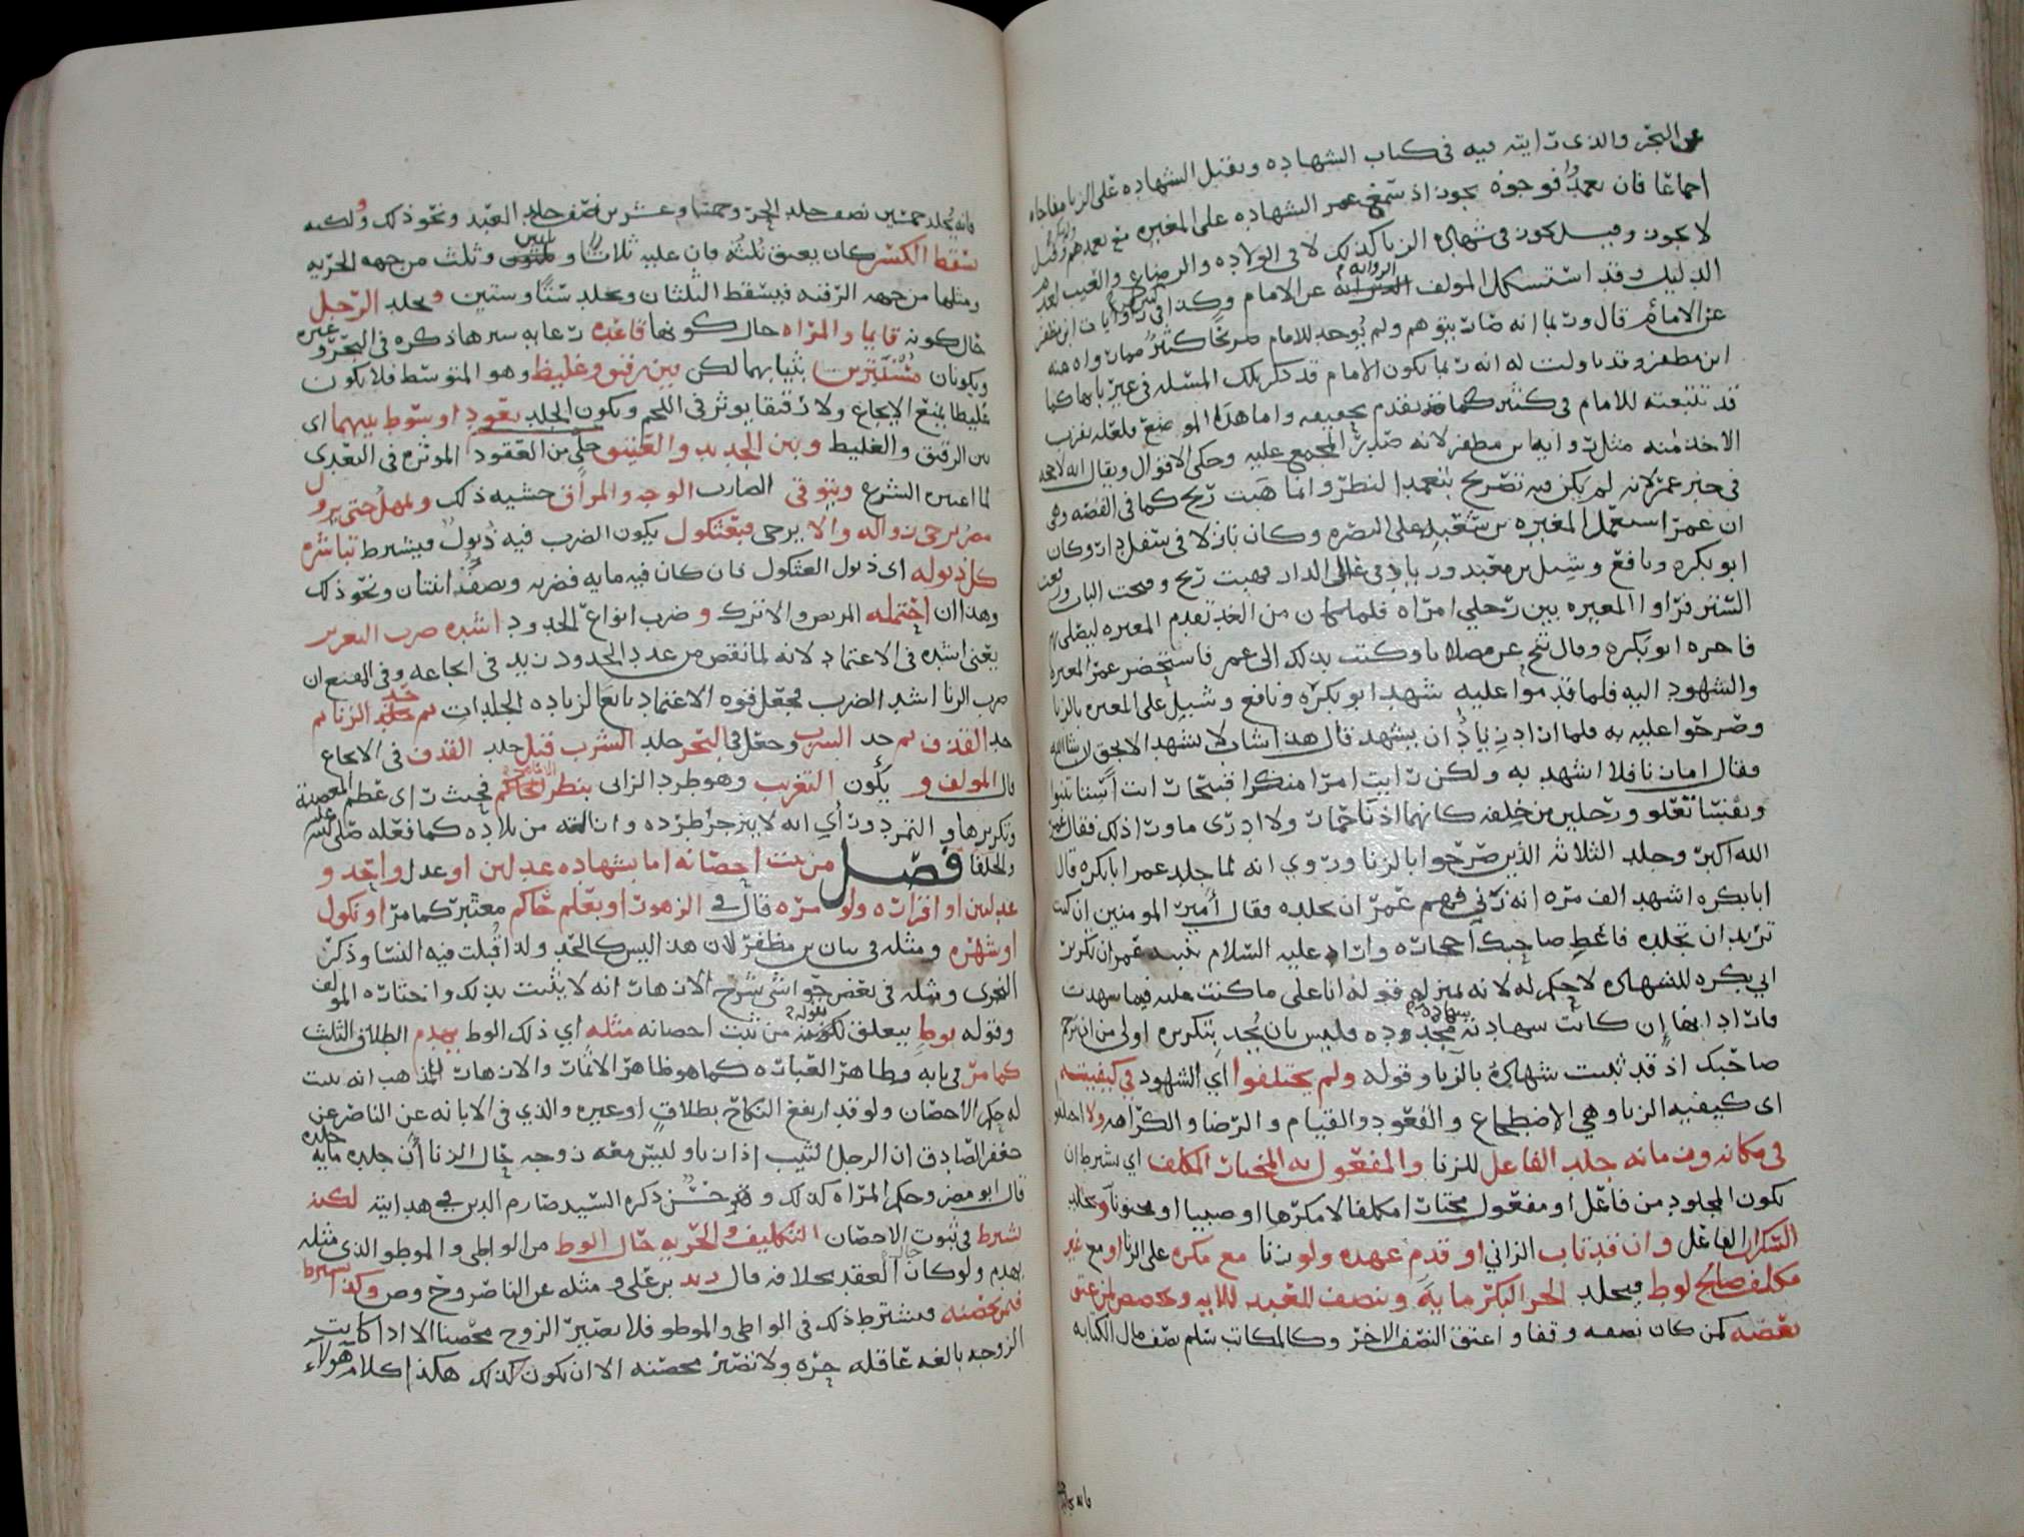 عن البحر والذي رايته فيه في كتاب الشهاده وتقبل الشهاده على الزنا مفاجاه
اجماعا فان تعمدوا فوجوه يجوز اذ سمع عمر الشهاده على المغيره مع تعمدهم وقيل
لا يجوز وقيل يجوز في شهاده الزنا كذلك لا في الولاده والرضاع والعيب
الدليل وقد استشكل المولف الروايه عن الامام وكذا في روايات ابن مظفر
عن الامام قال وربما انه صار يتوهم ولم يوجد للامام
ابن مظفر وقد تاولت له انه ربما يكون الامام قد ذكر تلك المسئله في غير بابها كما
قد تتبعته للامام في كثير كما قد تقدم تحقيقه واما هذا الموضع فلعله يقرب
الاخذ منه مثل روايه ابن مظفر لانه صدر المجمع عليه وحكى الاقوال ويقال انه لا حجه
في خبر عمر لانه لم يكن فيه تصريح بتعمد النظر وانما هبت ريح كما في القصه وهي
ان عمر استعمل المغيره بن شعبه على البصره وكان نازلا في سفل دار وكان
ابو بكره ونافع وشبل بن معبد وزياد في علو الدار فهبت ريح وفتحت الباب ورفعت
الستر فراوا المغيره بين رجلي امراه فلما كان من الغد تقدم المغيره ليصلي
فاخره ابو بكره وقال تنح عن مصلانا وكتب بذلك الى عمر فاستحضر عمر المغيره
والشهود اليه فلما قدموا عليه شهد ابو بكره ونافع وشبل على المغيره بالزنا
وصرحوا عليه به فلما اراد زياد ان يشهد قال هذا شاب لا يشهد الا بحق ان شا الله
فقال اما زنا فلا اشهد به ولكن رايت امرا منكرا قبيحا رايت
ونفسا تعلو ورجلين من خلفه كانهما اذنا حمار ولا ادري ما ورا ذلك فقال عمر
الله اكبر وجلد الثلاثه الذين صرحوا بالزنا وروي انه لما جلد عمر ابا بكره قال
ابا بكره اشهد الف مره انه زنى فهم عمر ان يجلده فقال امير المومنين ان كنت
تريد ان تجلده فاعط صاحبك احجاره واراد عليه السلام تنبيه عمر ان تكرير
ابي بكره للشهاده لا حكم له لانه بمنزله قوله انا على ما كنت عليه فيما شهدت
فاراد انها ان كانت شهادته مجدوده فليس بان يجد بتكريره اولى من ان ترجم
صاحبك اذ قد ثبت شهاده بالزنا وقوله ولم يختلفوا اي الشهود في كيفيته
اي كيفيه الزنا وهي الاضطجاع والقعود والقيام والرضا والكراهه ولا اختلفوا
في مكانه وزمانه جلد الفاعل للزنا والمفعول به المختار المكلف اي يشترط ان
يكون المجلود من فاعل او مفعول مختارا مكلفا لا مكرها او صبيا او مجنونا ويجلد
السكران الفاعل وان قد تاب الزاني او قدم عهده ولو زنا مع مكره على الزنا او مع غير
مكلف صالح لوط فيجلد الحر البكر مايه وينصف للعبد للايه ويحصص لمن عتق
بعضه كمن كان نصفه وقفا واعتق النصف الاخر وكالمكاتب سلم نصف مال الكتابه
فانه يجلد
فانه يجلد خمسين نصف جلد الحر وخمسا وعشرين نصف جلد العبد ونحو ذلك ولكنه
يسقط الكسر كان يعتق ثلثه فان عليه ثلاثا وثلاثين وثلث من جهه الحريه
ومثلها من جهه الرقيه فيسقط الثلثان ويجلد ستا وستين ويجلد الرجل
حال كونه قايما والمراه حال كونها قاعده رعايه سترها ذكره في البحر وغيره
ويكونان مستترين بثيابهما لكن بين رقيق وغليظ وهو المتوسط فلا يكون
غليظا يمنع الايجاع ولا رقيقا يوثر في اللحم ويكون الجلد بعود او سوط بينهما اي
بين الرقيق والغليظ وبين الجديد والعتيق خلي من العقود الموثره في التعدي
لما اعتبره الشرع ويتوقى الضارب الوجه والمراق خشيه ذلك ويمهل حتى يبرو
مريض يرجى زواله والا يرجى فبعثكول يكون الضرب فيه ذيول فيشترط تباشره
كل ذيوله اي ذيول العثكول فان كان فيه مايه فضربه ونصفه اثنتان ونحو ذلك
وهذا ان احتمله المريض والا ترك وضرب انواع الحدود اشده ضرب التعزير
يعني اشده في الاعتماد لانه لما نقص من عدد الحدود زيد في ايجاعه وفي المقنع ان
ضرب الزنا اشد الضرب فجعل قوه الاعتماد تابعا لزياده الجلدات ثم حد الزنا ثم
حد القذف ثم حد الشرب وجعل في البحر جلد الشرب قبل جلد القذف في الايجاع
قال المولف ويكون التغريب وهو طرد الزاني بنظر الحاكم فحيث راى عظم المعصيه
وتكريرها والتمرد وراى انه لا ينزجر طرده وازاله من بلاده كما فعله صلى الله عليه
والخلفا فصل من ثبت احصانه اما بشهاده عدلين او عدل واحد و
عدلتين او اقراره ولو مره قال في الزهور او بعلم حاكم معتبر كما مر او نكول
او شهره ومثله في بيان بن مظفر لان هذا ليس كالحد ولذا قبلت فيه النسا وذكر
النجري ومثله في بعض حواشي شرح الازهار انه لا يثبت بذلك واختاره المولف
وقوله بوط يتعلق بقوله من ثبت احصانه مثله اي ذلك الوط يهدم الطلاق الثلث
كما مر في بابه وظاهر العباره كما هو ظاهر الاثمار والازهار للمذهب انه يثبت
له حكم الاحصان ولو قد ارتفع النكاح بطلاق او غيره والذي في الابانه عن الناصر عن
جعفر الصادق ان الرجل الثيب اذا زنا وليس معه زوجه حال الزنا ان جلده مايه جلده
قال ابو مضر وحكم المراه كذلك وقد ذكره السيد صارم الدين في هدايته لكنه
يشترط في ثبوت الاحصان التكليف والحريه حال الوط من الواطي والموطو الذي مثله
يهدم ولو كان حاله العقد بخلافه قال زيد بن علي ومثله عن الناصر وح وص وكذا يشترط
فيمن تحصنه فيشترط ذلك في الواطي والموطو فلا يصير الزوج محصنا الا اذا كانت
الزوجه بالغه عاقله حره ولا تصير محصنه الا ان يكون كذلك هكذا كلام هولاء